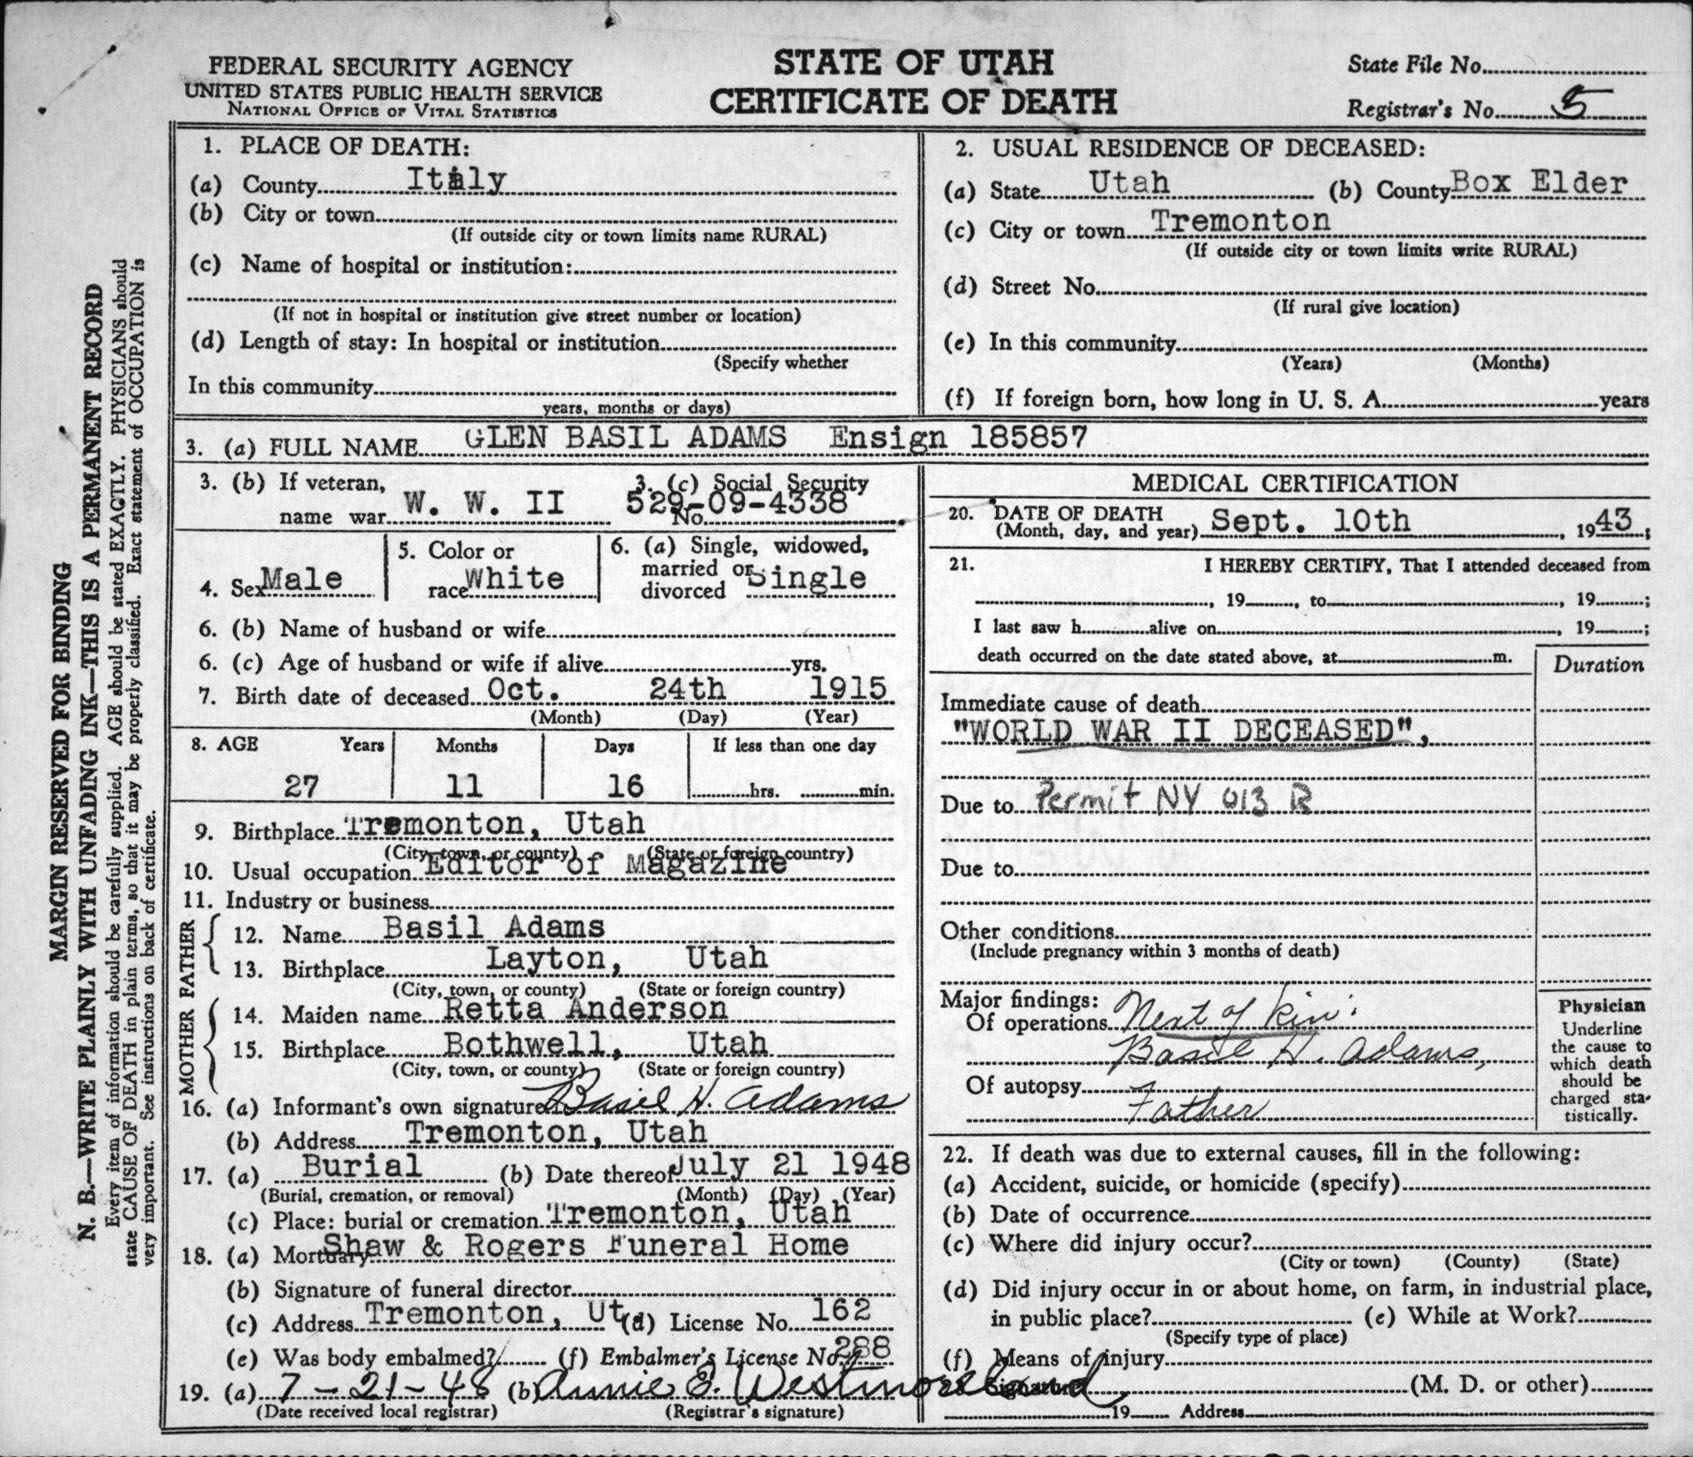 FEDERAL SECURITY AGENCY
UNITED STATES PUBLIC HEALTH SERVICE
NATIONAL OFFICE OF VITAL STATISTICS
STATE OF UTAH
CERTIFICATE OF DEATH
State File No.
Registrar's No. 5
MARGIN RESERVED FOR BINDING
N. B.—WRITE PLAINLY WITH UNFADING INK—THIS IS A PERMANENT RECORD
Every item of information should be carefully supplied. AGE should be stated EXACTLY. PHYSICIANS should
state CAUSE OF DEATH in plain terms, so that it may be properly classified. Exact statement of OCCUPATION is
very important. See instructions on back of certificate.
1. PLACE OF DEATH:
(a) County Italy
(b) City or town
(If outside city or town limits name RURAL)
(c) Name of hospital or institution:
(If not in hospital or institution give street number or location)
(d) Length of stay: In hospital or institution
(Specify whether
In this community
years, months or days)
2. USUAL RESIDENCE OF DECEASED:
(a) State Utah (b) County Box Elder
(c) City or town Tremonton
(If outside city or town limits write RURAL)
(d) Street No.
(If rural give location)
(e) In this community
(Years) (Months)
(f) If foreign born, how long in U. S. A. years
3. (a) FULL NAME GLEN BASIL ADAMS Ensign 185857
3. (b) If veteran,
name war W. W. II
3. (c) Social Security
No. 529-09-4338
4. Sex Male
5. Color or
race White
6. (a) Single, widowed,
married or
divorced Single
6. (b) Name of husband or wife
6. (c) Age of husband or wife if alive yrs.
7. Birth date of deceased Oct. 24th 1915
(Month) (Day) (Year)
8. AGE Years Months Days If less than one day
27 11 16 hrs. min.
9. Birthplace Tremonton, Utah
(City, town, or county) (State or foreign country)
10. Usual occupation Editor of Magazine
11. Industry or business
FATHER
12. Name Basil Adams
13. Birthplace Layton, Utah
(City, town, or county) (State or foreign country)
MOTHER
14. Maiden name Retta Anderson
15. Birthplace Bothwell, Utah
(City, town, or county) (State or foreign country)
16. (a) Informant's own signature Basil H. Adams
(b) Address Tremonton, Utah
17. (a) Burial (b) Date thereof July 21 1948
(Burial, cremation, or removal) (Month) (Day) (Year)
(c) Place: burial or cremation Tremonton, Utah
18. (a) Mortuary Shaw & Rogers Funeral Home
(b) Signature of funeral director
(c) Address Tremonton, Ut. (d) License No. 162
(e) Was body embalmed? (f) Embalmer's License No. 288
19. (a) 7-21-48 (b) Annie E. Westmoreland
(Date received local registrar) (Registrar's signature)
MEDICAL CERTIFICATION
20. DATE OF DEATH
(Month, day, and year) Sept. 10th, 1943;
21. I HEREBY CERTIFY, That I attended deceased from
, 19 , to , 19 ;
I last saw h alive on , 19 ;
death occurred on the date stated above, at m.
Duration
Immediate cause of death
"WORLD WAR II DECEASED",
Due to Permit NY 013 R
Due to
Other conditions
(Include pregnancy within 3 months of death)
Major findings:
Of operations Next of kin:
Basil H. Adams,
Of autopsy
Father
Physician
Underline
the cause to
which death
should be
charged sta-
tistically.
22. If death was due to external causes, fill in the following:
(a) Accident, suicide, or homicide (specify)
(b) Date of occurrence
(c) Where did injury occur?
(City or town) (County) (State)
(d) Did injury occur in or about home, on farm, in industrial place,
in public place? (e) While at Work?
(Specify type of place)
(f) Means of injury
Signature (M. D. or other)
19 Address